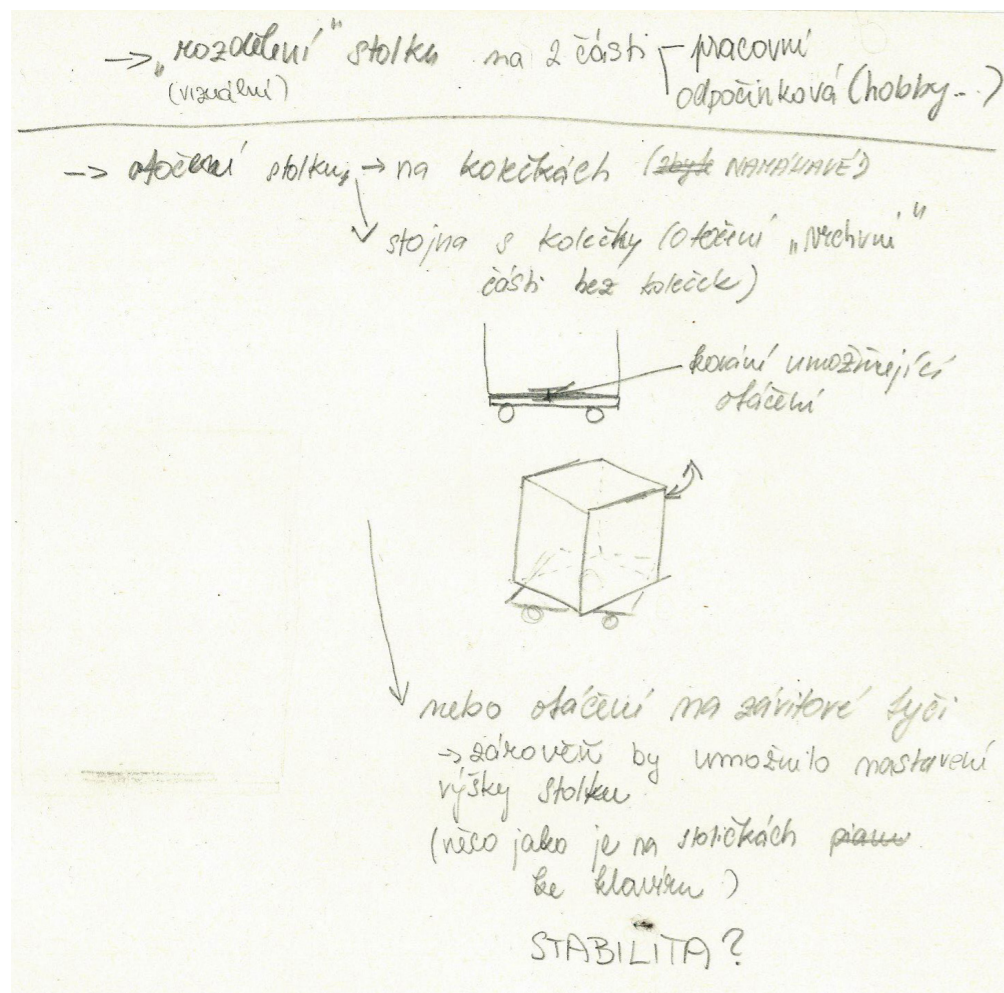 → „rozdělení" stolku na 2 části - pracovní
(vizuální) odpočinková (hobby...)
→ otočení stolku → na kolečkách (zbyt NAMÁHAVÉ)
stojna s kolečky (otočení „vrchní"
části bez koleček)
kování umožňující
otáčení
nebo otáčení na závitové tyči
→ zárověň by umožnilo nastavení
výšky stolku
(něco jako je na stoličkách piano
ke klavíru)
STABILITA?